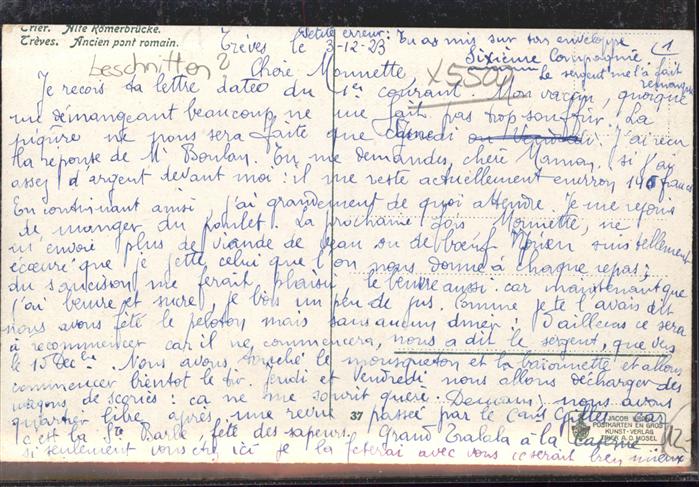 Trier. Alte Römerbrücke.
Trèves. Ancien pont romain.
Petite erreur: Tu as mis sur ton enveloppe
Sixième Compagnie
Le sergent me l'a fait
remarquer
(1
Trèves le 3-12-23
beschritten?
X5500
Chère Mounette,
Je reçois ta lettre datée du 1er courant. Mon vaccin, quoique
me démangeant beaucoup ne me fait pas trop souffrir. La
piqûre ne nous sera faite que Samedi ou Vendredi. J'ai reçu
la réponse de Mr Boulan. Tu me demandes, chère Maman, si j'ai
assez d'argent devant moi: il me reste actuellement environ francs
En continuant ainsi j'ai grandement de quoi attendre. Je me réjouis
de manger du poulet. La prochaine fois Mounette, ne
m'envoie plus de viande de veau ou de bœuf. J'en suis tellement
écœuré que je jette celui que l'on nous donne à chaque repas;
du saucisson me ferait plaisir, le beurre aussi car maintenant que
j'ai beurre et sucre, je bois un peu de jus. Comme je te l'avais dit
nous avons fêté le peloton mais sans aucun dîner! D'ailleurs ce sera
à recommencer car il ne commencera, nous a dit le sergent, que vers
le 15 Decbre. Nous avons touché le mousqueton et la baïonnette et allons
commencer bientôt le tir. Jeudi et Vendredi nous allons décharger des
wagons de scories: ça ne me sourit guère. Demain nous avons
quartier libre après une revue passée par le car
c'est la Ste Barbe, fête des sapeurs. Grand Tralala à la caserne
si seulement vous étiez ici je la fêterai avec vous ce serait bien mieux
37
JACOB
POSTKARTEN EN GROS
KUNST-VERLAG
TRIER A. D. MOSEL
12